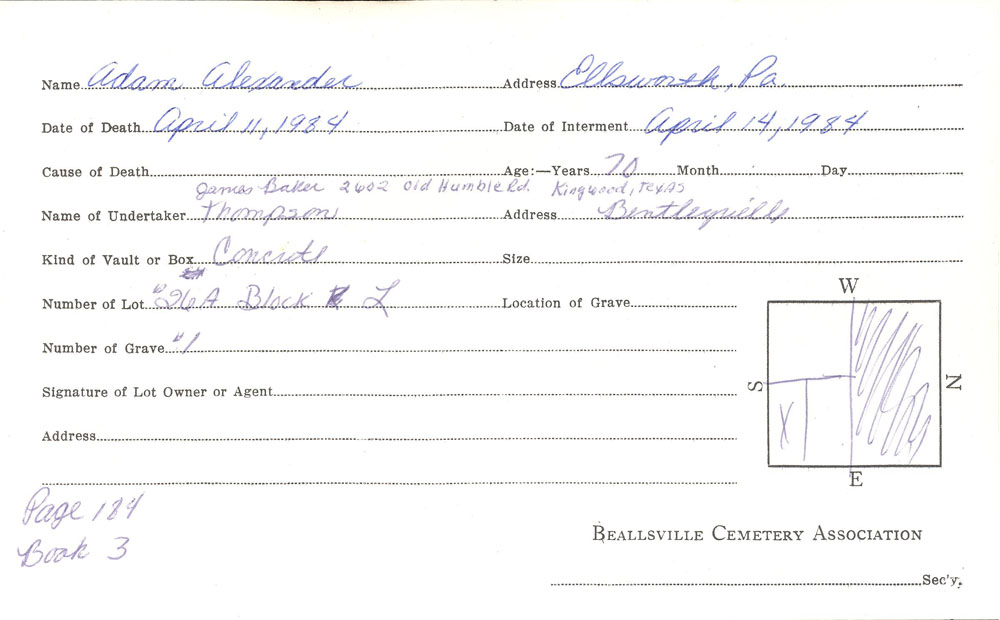 Name Adam Alexander Address Ellsworth, Pa.
Date of Death April 11, 1984 Date of Interment April 14, 1984
Cause of Death Age:—Years 70 Month Day
James Baker 2602 Old Humble Rd. Kingwood, Texas
Name of Undertaker Thompson Address Bentleyville
Kind of Vault or Box Concrete Size
Number of Lot #26A Block L Location of Grave
Number of Grave #1
Signature of Lot Owner or Agent
Address
W
S
N
X
E
Page 184
Book 3
BEALLSVILLE CEMETERY ASSOCIATION
Sec'y.